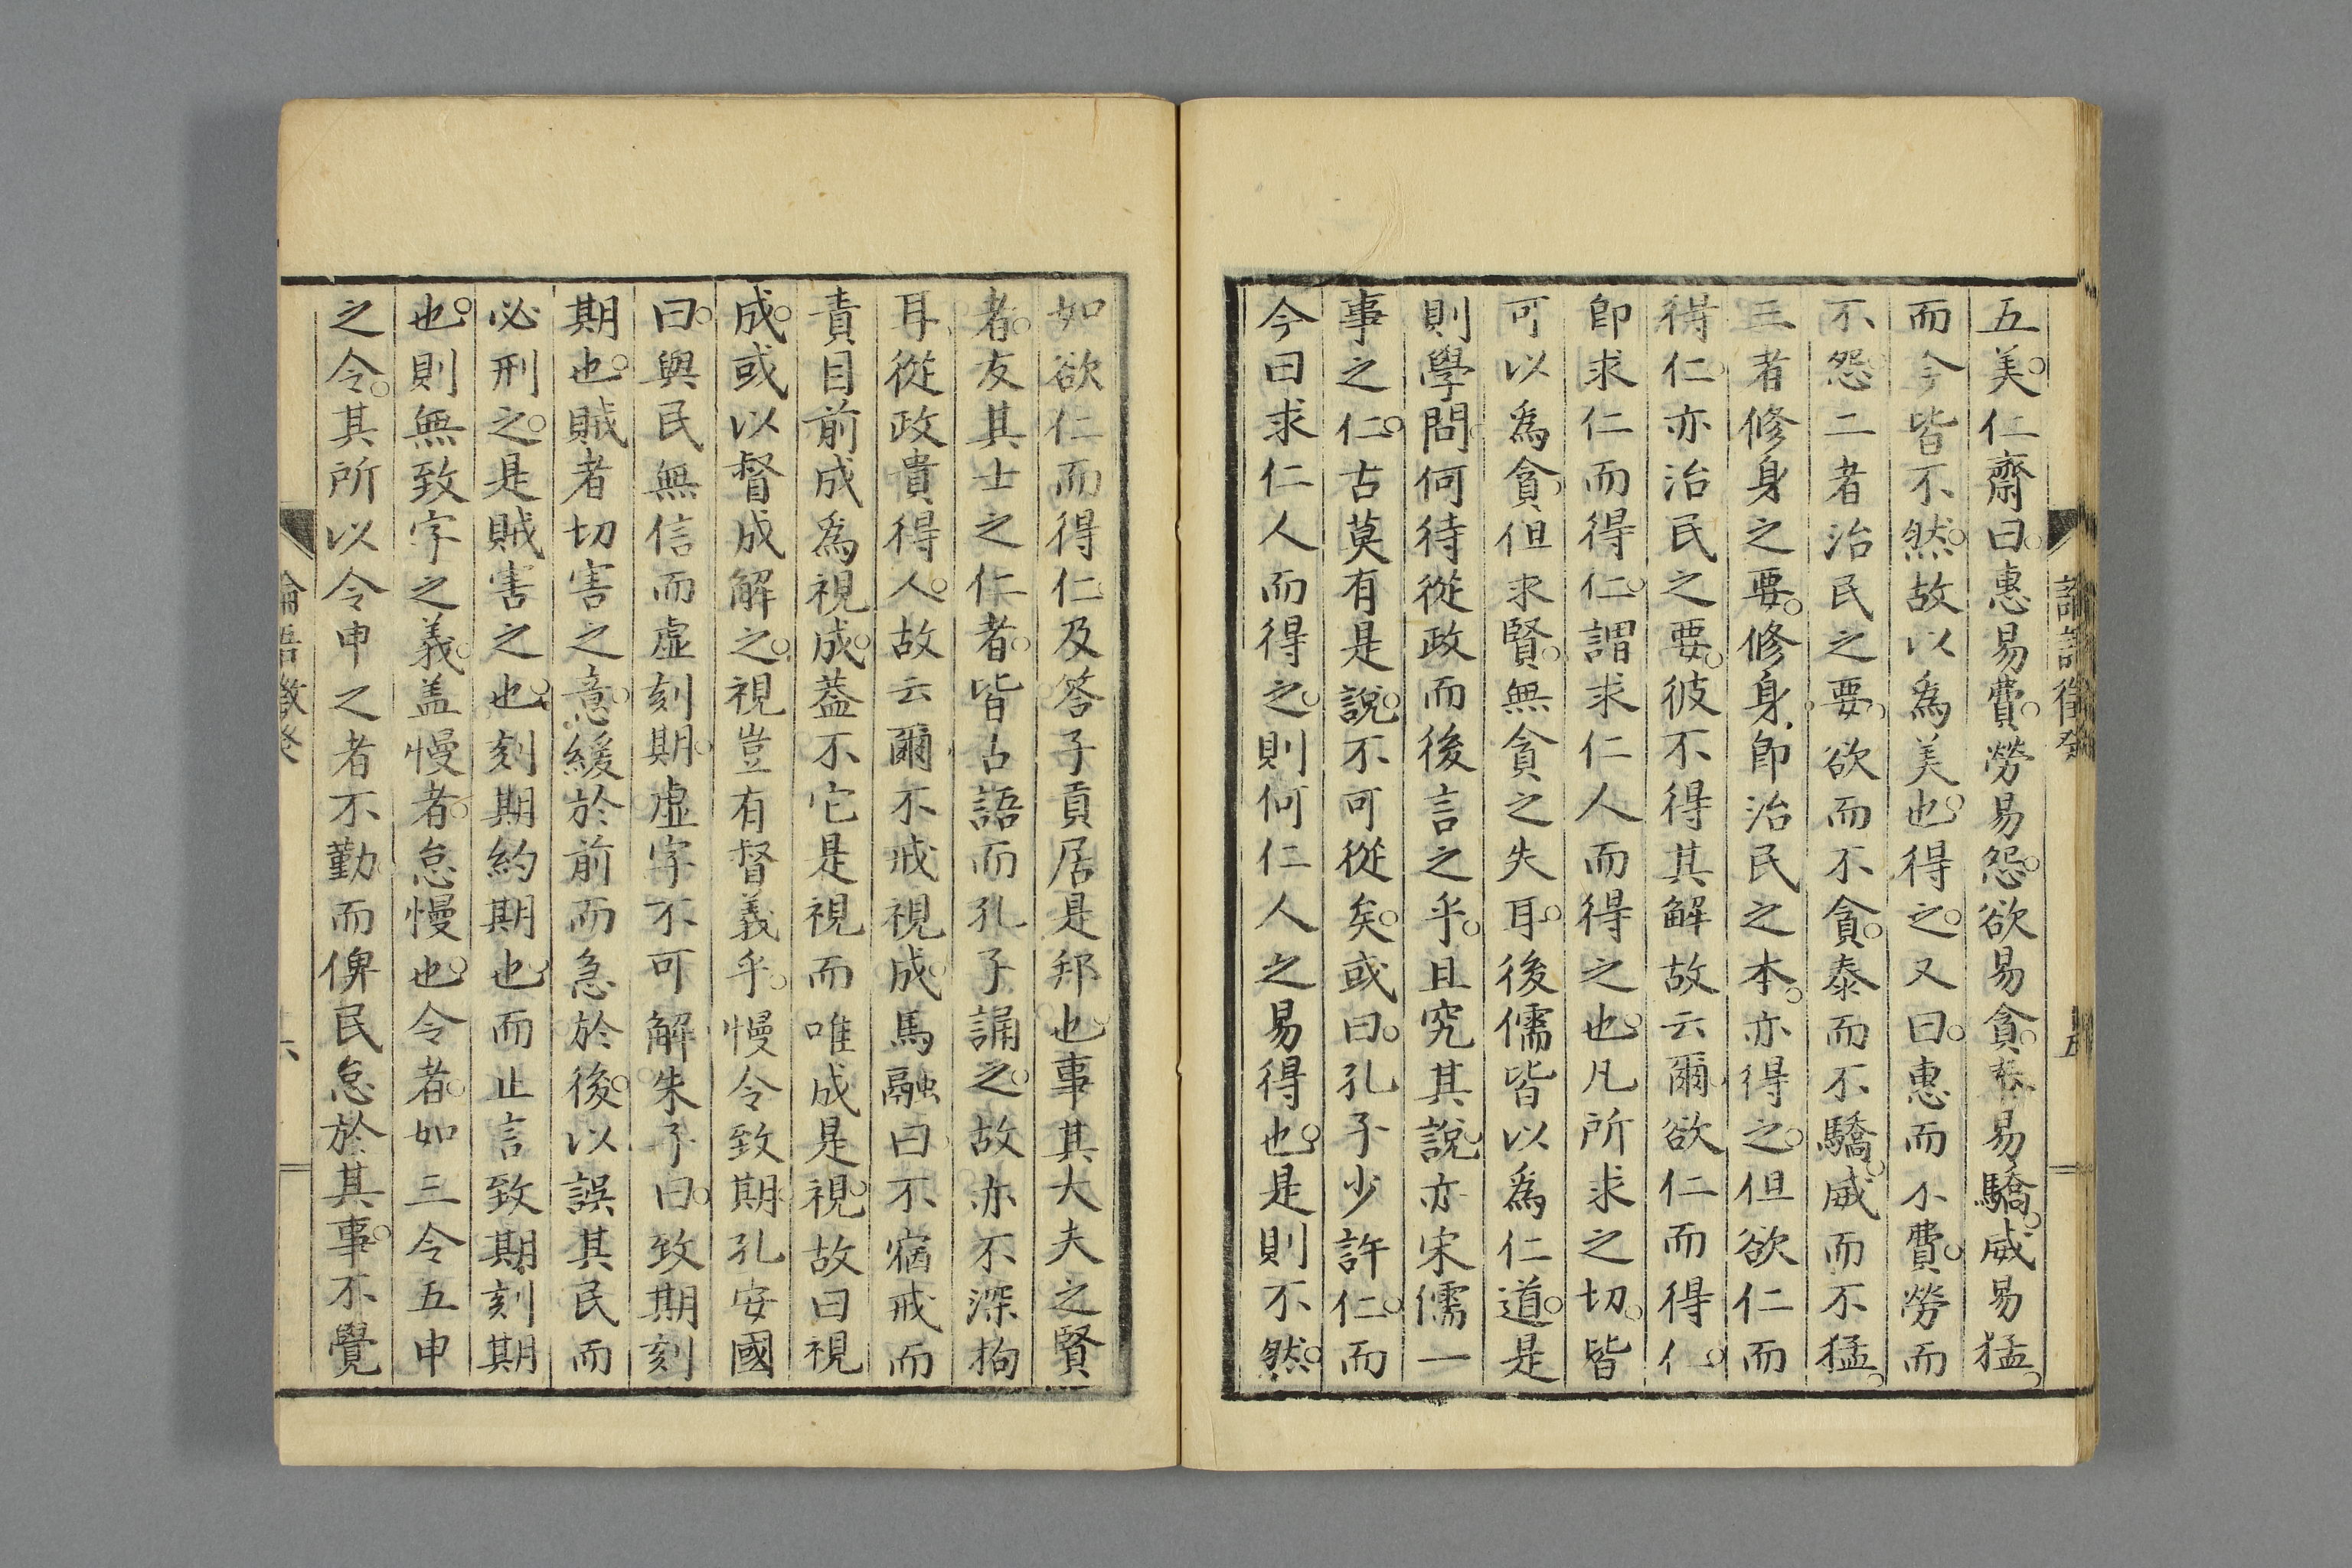 五美仁齋曰惠易費勞易怨欲易貪泰易驕威易猛
而今皆不然故以爲美也得之又曰惠而不費勞而
不怨二者治民之要欲而不貪泰而不驕威而不猛
三者修身之要修身即治民之本亦得之但欲仁而
得仁亦治民之要彼不得其解故云爾欲仁而得仁
即求仁而得仁謂求仁人而得之也凡所求之切皆
可以爲貪但求賢無貪之失耳後儒皆以爲仁道是
則學問何待從政而後言之乎且究其說亦宋儒一
事之仁古莫有是說不可從矣或曰孔子少許仁而
今曰求仁人而得之則何仁人之易得也是則不然
如欲仁而得仁及答子貢居是邦也事其大夫之賢
者友其士之仁者皆古語而孔子誦之故亦不深拘
耳從政貴得人故云爾不戒視成馬融曰不宿戒而
責目前成爲視成蓋不它是視而唯成是視故曰視
成或以督成解之視豈有督義乎慢令致期孔安國
曰與民無信而虛刻期虛字不可解朱子曰致期刻
期也賊者切害之意緩於前而急於後以誤其民而
必刑之是賊害之也刻期約期也而止言致期刻期
也則無致字之義盖慢者怠慢也令者如三令五申
之令其所以令申之者不勤而俾民怠於其事不覺
論語徵癸
六